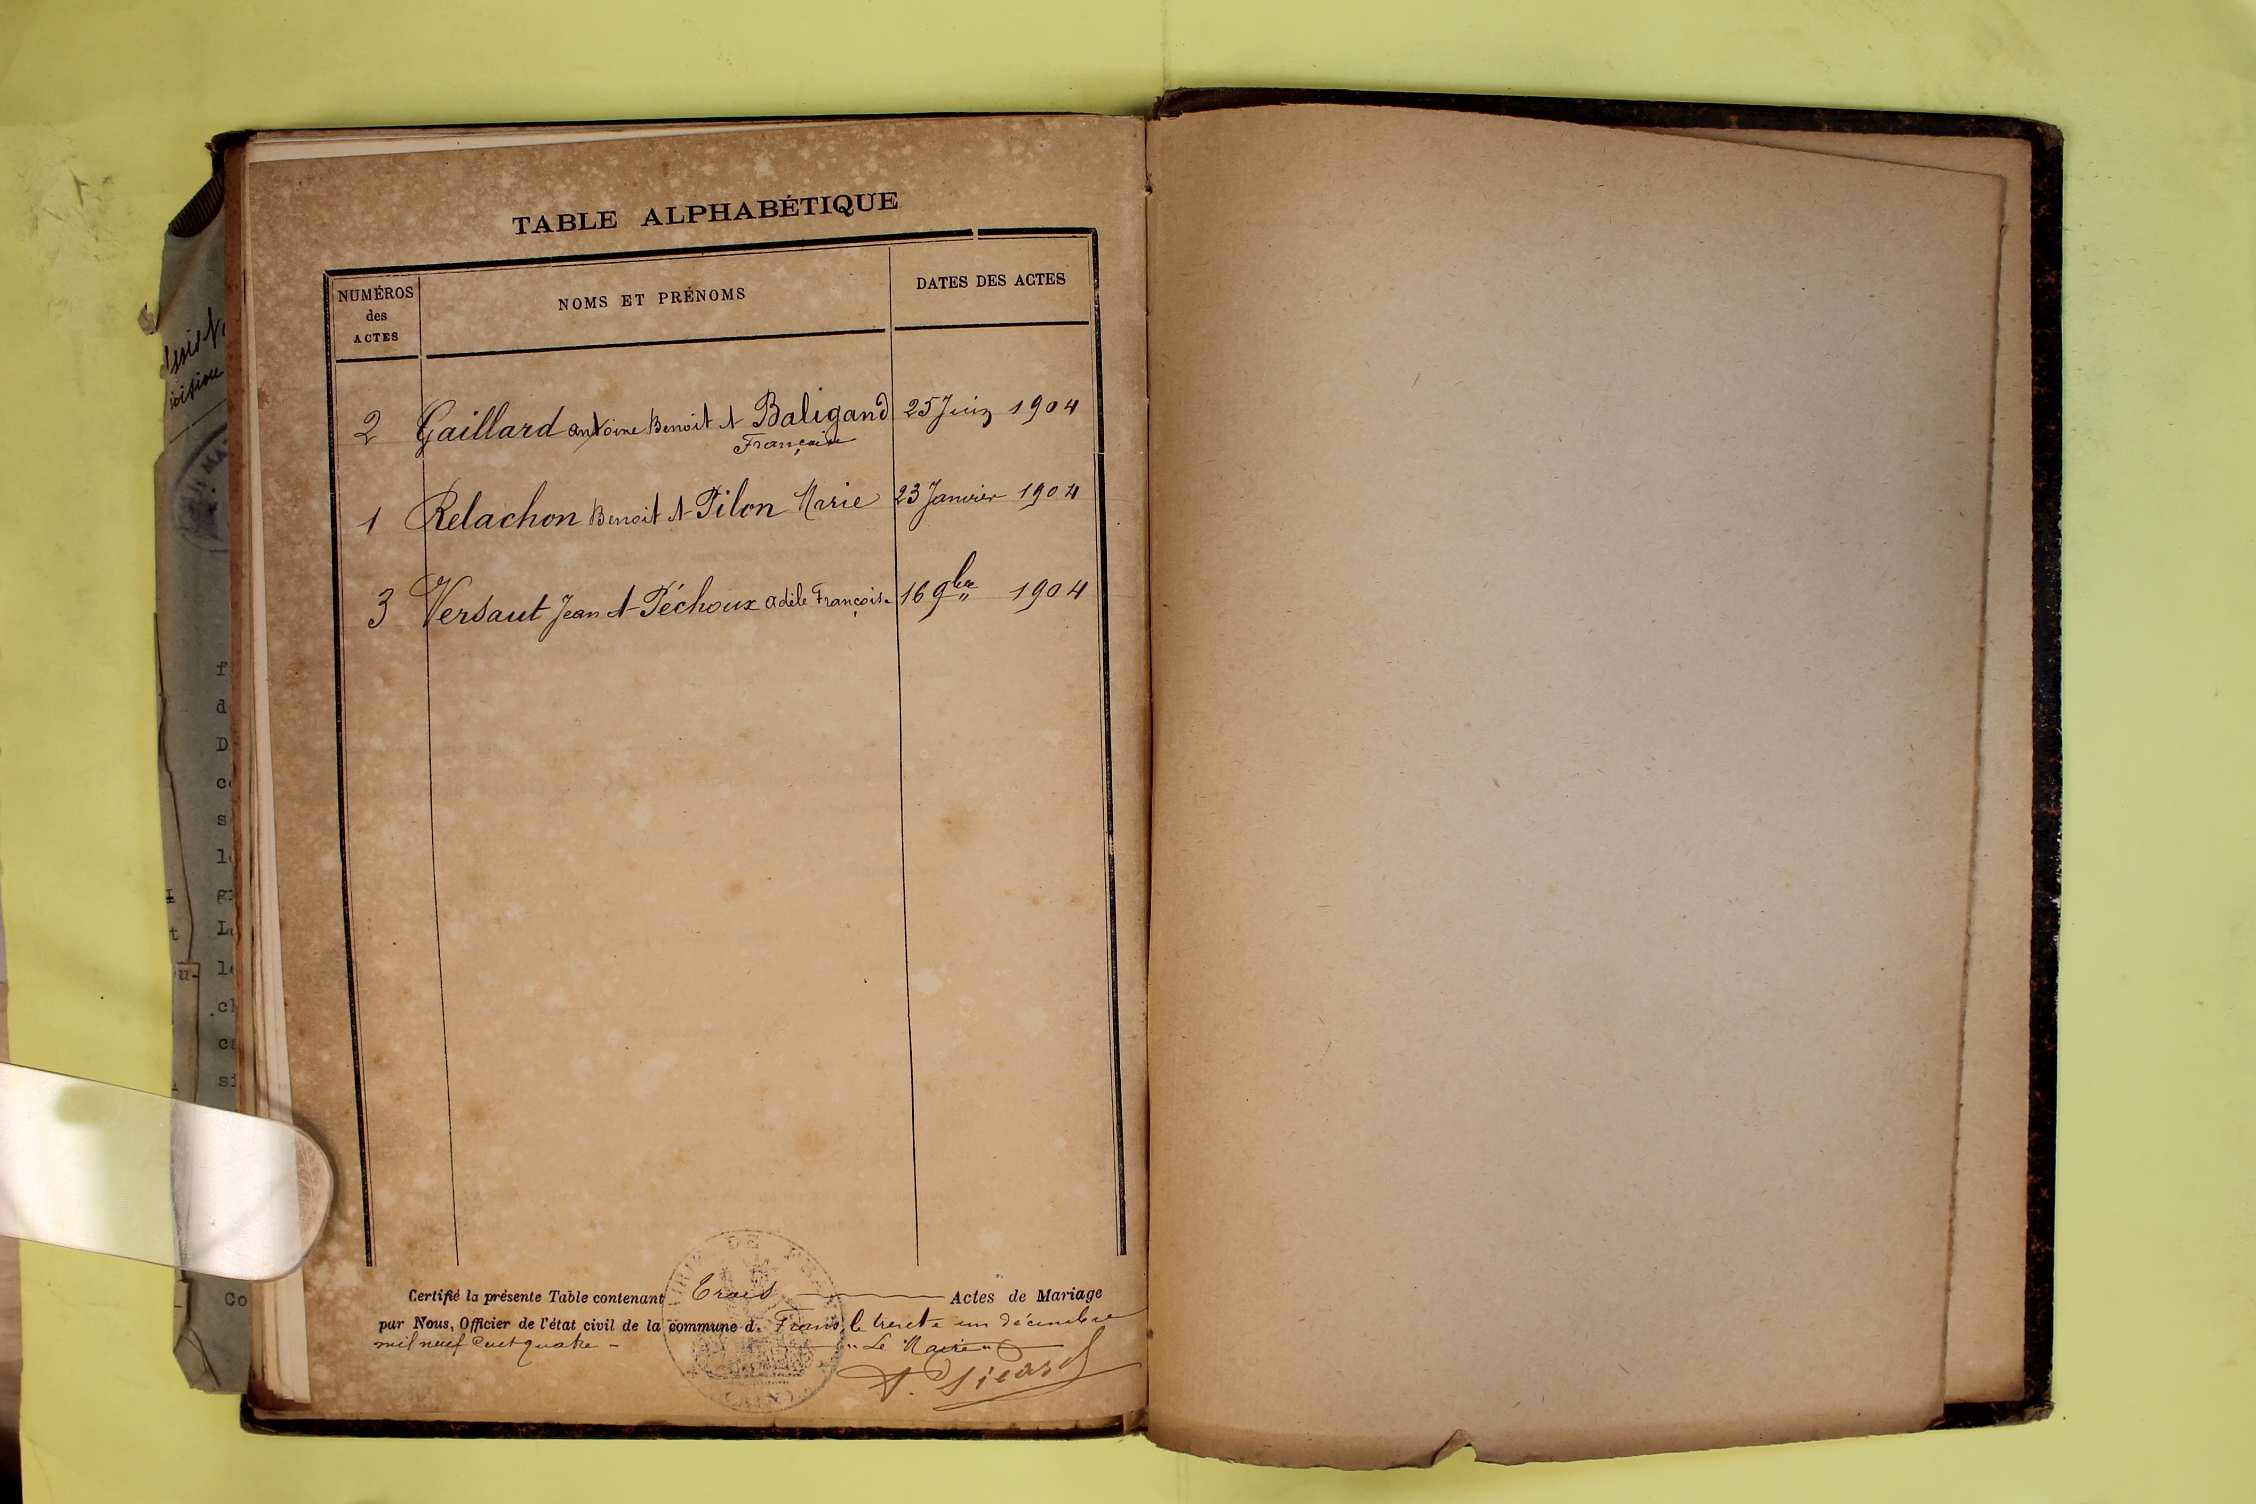 TABLE ALPHABÉTIQUE
NUMÉROS
des
ACTES
NOMS ET PRÉNOMS
DATES DES ACTES
2 Gaillard Antoine Benoit et Baligand 25 Juin 1904
Françoise
1 Relachon Benoit et Pilon Marie 23 Janvier 1904
3 Versaut Jean et Péchoux Adèle Françoise 16 9bre 1904
Certifié la présente Table contenant Trois Actes de Mariage
par Nous, Officier de l'état civil de la commune de Frans le trente un décembre
mil neuf cent quatre - " Le Maire "